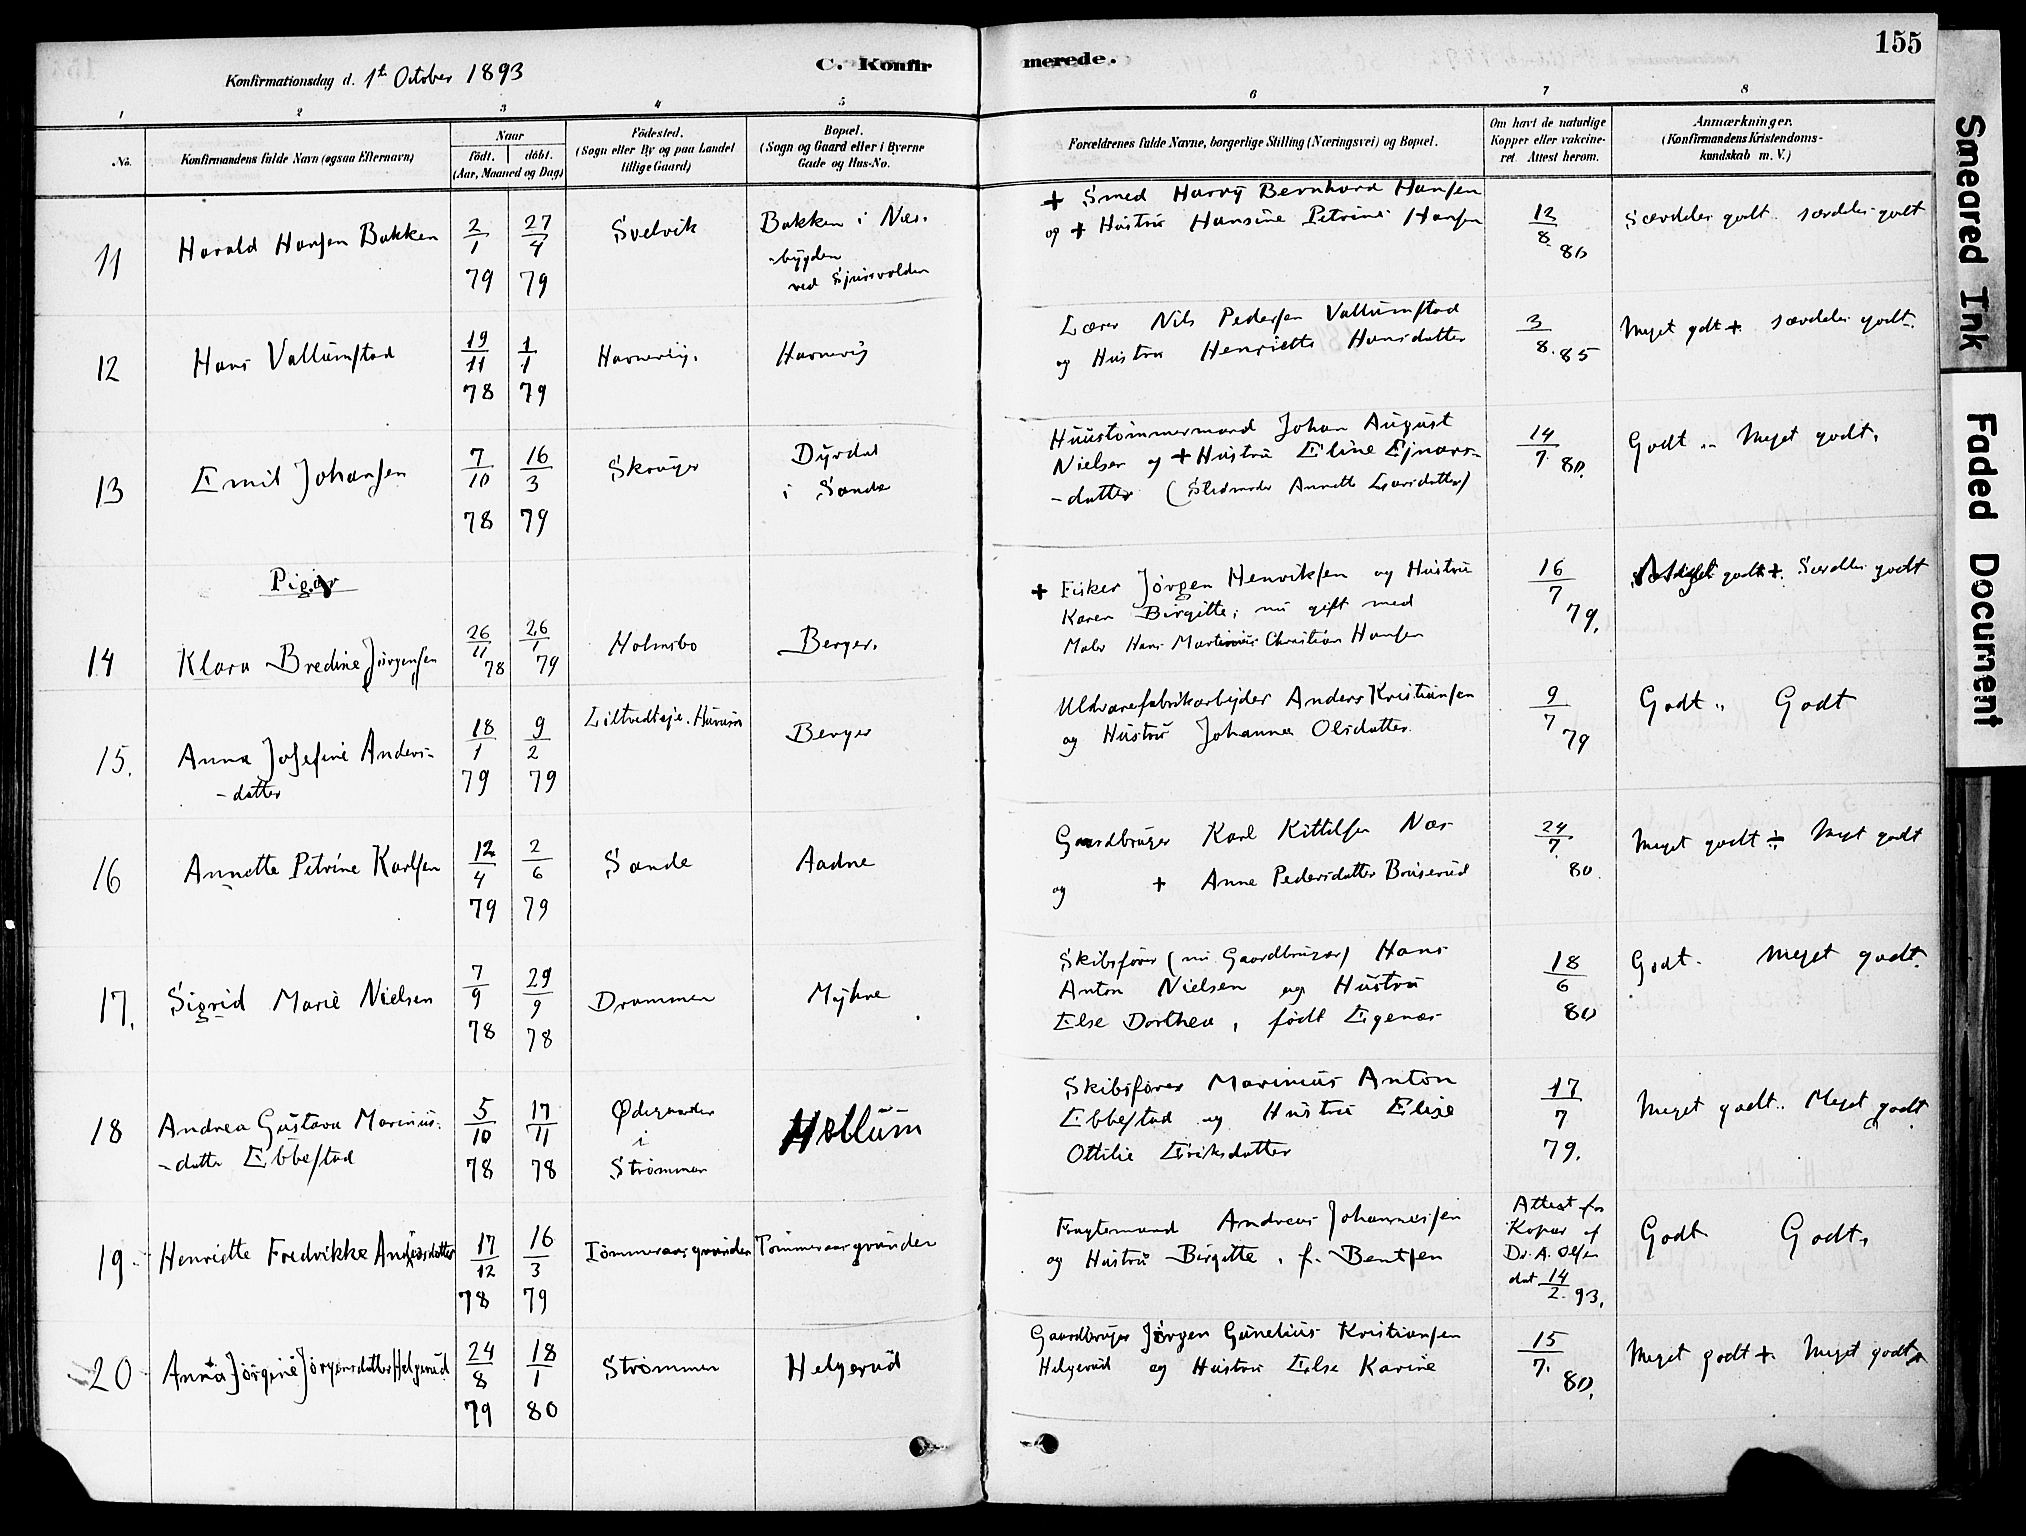 155
Konfirmationsdag d. 1st October 1893
C. Konfirmerede.
1 2 3 4 5 6 7 8
No.
Konfirmandens fulde Navn (ogsaa Efternavn)
Naar
født. | døbt.
(Aar, Maaned og Dag)
Fødested.
(Sogn eller By og paa Landet
tillige Gaard)
Bopæl.
(Sogn og Gaard eller i Byerne
Gade og Hus-No.
Forældrenes fulde Navne, borgerlige Stilling (Næringsvei) og Bopæl.
Om havt de naturlige
Kopper eller vakcine-
ret Attest herom.
Anmærkninger.
(Konfirmandens Kristendoms-
kundskab m. V.)
11
Harald Hansen Bakken
2/1 79
27/4 79
Svelvik
Bakken i Næs-
-bygden
ved
+ Smed Harry Bernhard Hansen
og + Hustru Hansine Petrine Hansen
12/8 80
Særdeles godt. særdeles godt
12
Hans Vallumstad
19/11 78
1/1 79
Havnevig.
Havnevig
Lærer Nils Pedersen Vallumstad
og Hustru Henriette Hansdatter
3/8. 85
Meget godt +. særdeles godt.
13
Emil Johansen
7/10 78
16/3 79
Skouger
Dyrdal
i Sande
Huustømmermand Johan August
Nielsen og + Hustru Eline Ejnars-
-datter (Stedmoder Annette Larsdatter)
14/7 80.
Godt .. Meget godt.
Piger
14
Klara Bredine Jørgensen
26/11 78
26/1 79
Holmsbo
Berger.
+ Fisker Jørgen Henriksen og Hustru
Karen Birgitte; nu gift med
Maler Hans Martinius Christian Hansen
16/7 79.
Meget godt +. Særdeles godt
15.
Anna Josefine Anders-
-datter
18/1 79
9/2 79
Hurum
Berger
Uldvarefabrikarbejder Anders Kristiansen
og Hustru Johanna Olsdatter.
9/7 79
Godt .. Godt
16
Annette Petrine Karlsen
12/4 79
2/6 79
Sande
Aadne
Gaardbruger Karl Kittilsen Næs
og + Anne Pedersdatter Bruserud
24/7. 80.
Meget godt ÷ Meget godt
17.
Sigrid Marie Nielsen
7/9 78
29/9 78
Drammen
Myhre
Skibsfører (nu Gaardbruger) Hans
Anton Nielsen og Hustru
Else Dorthea, født Egenæs
18/6 80
Godt. Meget godt.
18
Andrea Gustava Marinius-
-datter Ebbestad
5/10 78
17/11 78
Ødegaarden
i
Strømmen
Hellum
Skibsfører Marinius Anton
Ebbestad og Hustru Elise
Ottilie Eriksdatter
17/7 79.
Meget godt.. Meget godt.
19
Henriette Fredrikke Andreasdatter
17/12 78
16/3 79
Tømmeraasgrunden
Tømmeraasgrunden
Fragtemand Andreas Johannessen
og Hustru Birgitte, f. Bentsen
Attest for
Kopar af
Dr. A. Olsen
dat 14/2. 93.
Godt Godt.
20
Anna Jørgine Jørgensdatter Helgerud
24/8 79
18/1 80
Strømmen
Helgerud
Gaardbruger Jørgen Gunelius Kristiansen
Helgerud og Hustru Else Karine
15/7. 80.
Meget godt +. Meget godt
Smeared Ink
Faded Document